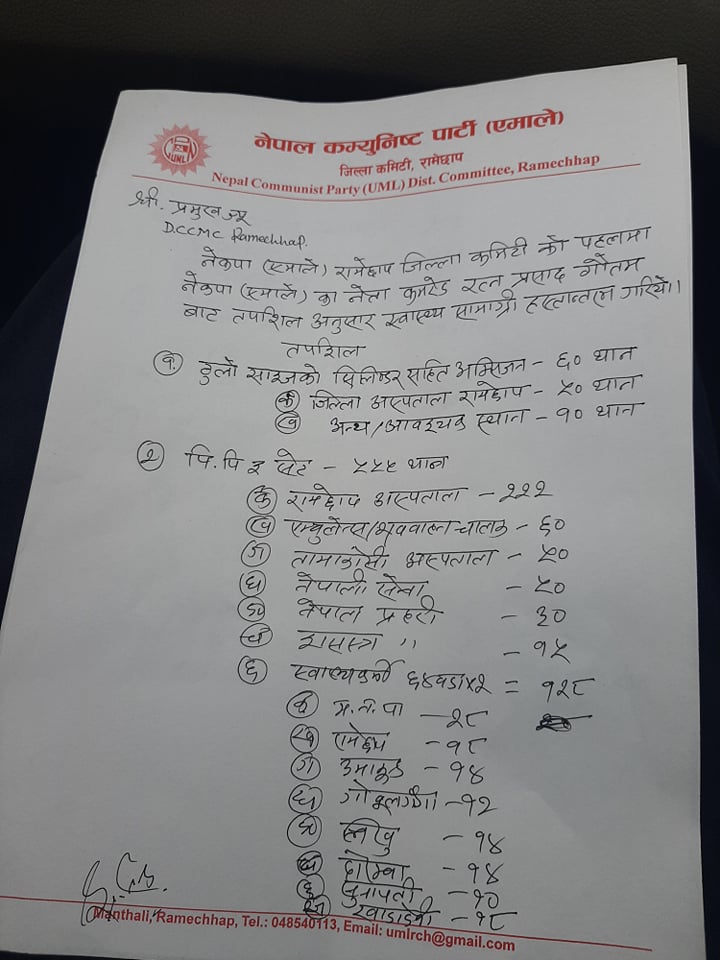 नेपाल कम्युनिष्ट पार्टी (एमाले)
जिल्ला कमिटी, रामेछाप
Nepal Communist Party (UML) Dist. Committee, Ramechhap
UML
श्री. प्रमुख ज्यू
DCCMC Ramechhap.
नेकपा (एमाले) रामेछाप जिल्ला कमिटी को पहलमा
नेकपा (एमाले) का नेता कमरेड रत्न प्रसाद गौतम
बाट तपशिल अनुसार स्वास्थ्य सामाग्री हस्तान्तरण गरियो।।
तपशिल
१. ठुलो साइजको सिलिन्डर सहित अक्सिजन - ६० थान
क जिल्ला अस्पताल रामेछाप - ५० थान
ख अन्य/आवश्यक स्थान - १० थान
२ पि.पि इ सेट - ५५५ थान
क रामेछाप अस्पताल - २२२
ख एम्बुलेन्स/शववाहन चालक - ६०
ग तामाकोसी अस्पताल - ५०
घ नेपाली सेना - ५०
ङ नेपाल प्रहरी - ३०
च सशस्त्र ,, - १५
छ स्वास्थ्यकर्मी ६४ वडा x २ = १२८
क म.न.पा - २८
ख रामेछाप - १८
ग उमाकुण्ड - १४
घ गोकुलगंगा - १२
ङ लिखु - १४
च दोरम्बा - १४
छ सुनापती - १०
ज खाडादेवी - १८
Manthali, Ramechhap, Tel.: 048540113, Email: umlrch@gmail.com